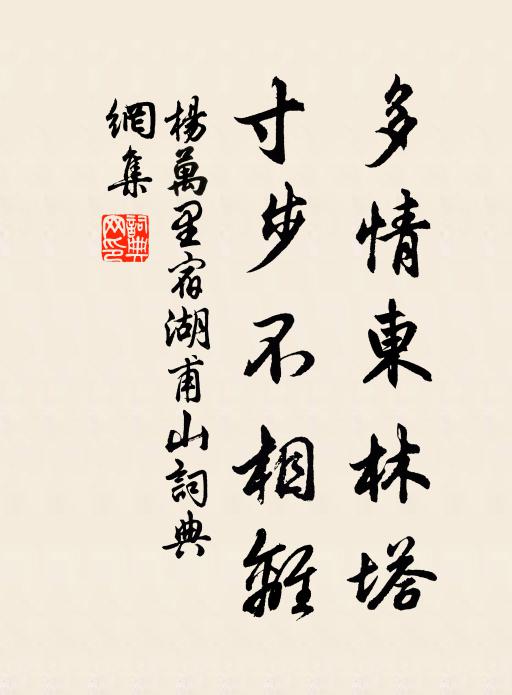 多情東林塔
寸步不相離
楊萬里宿湖甫山詞典
網集
詞典
网印